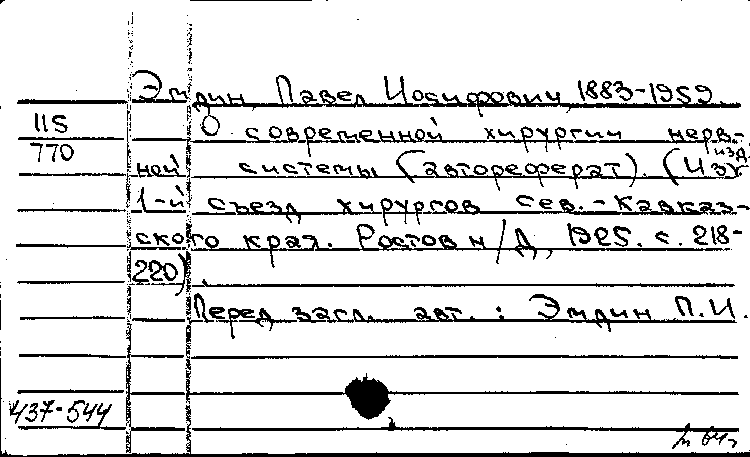 Эмдин, Павел Иосифович, 1883-1959.
115
770
О современной хирургии нерв-
ной системы (автореферат). (Изд.
изд.
1-й съезд хирургов сев.-Кавказ-
ского края. Ростов н/Д, 1925. с. 218-
220).
Перед загл. авт.: Эмдин П.И.
437-544